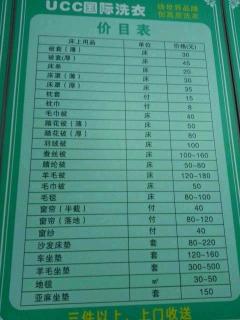 UCC国际洗衣
价目表
床上用品 单位 价格(元)
被套(薄) 床 30
被套(厚) 床 45
床单 床 20
床罩(薄) 床 30
床罩(厚) 床 35
枕套 付 15
枕巾 付 8
毛巾被 床 40
踏花被(薄) 床 50
踏花被(厚) 床 80
羽绒被 床 100
蚕丝被 床 100-160
腈纶被 床 50-80
羊毛被 床 120-180
毛巾被 床 50
毛毯 床 80-100
窗帘(半截) 付 40
窗帘(落地) 付 80-120
窗纱 付 40
沙发床垫 套 80-220
车坐垫 套 120-160
羊毛坐垫 套 300-500
地毯 ㎡ 30-50
亚麻坐垫 套 150
三件以上，上门收送